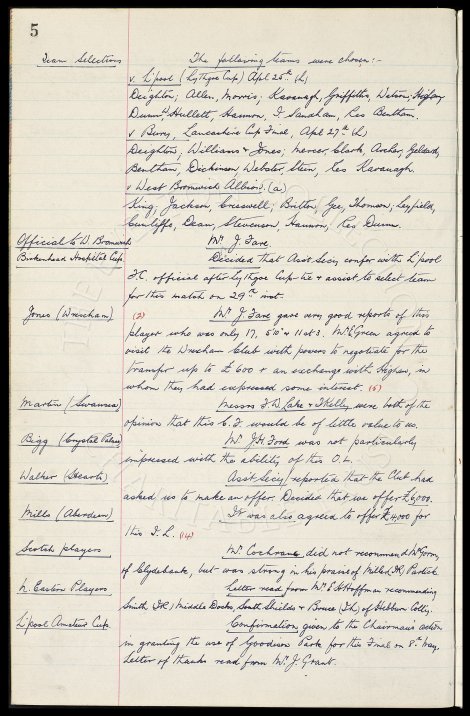 5
Team Selections The following teams were chosen:-
v. L'pool (Lythgoe Cup) Apl 25th (h)
Deighton; Allen, Morris; Kavanagh, Griffiths, Watson; Hughes,
Dunn, Hullett, Hannon, J. Sandham, Res Bentham.
v Bury, Lancashire Cup Final, Apl 27th (h)
Deighton; Williams & Jones; Mercer, Clark, Archer; Geldard,
Bentham, Dickinson, Webster, Stein, Res Kavanagh.
v West Bromwich Albion. (a)
King; Jackson, Cresswell; Britton, Gee, Thomson; Leyfield,
Cunliffe, Dean, Stevenson, Hannon, Res Dunn.
Official to W Bromwich Mr. J. Fare
Birkenhead Hospital Cup Decided that Asst Secy confer with L'pool
F.C. official after Lythgoe Cup-tie & assist to select team
for this match on 29th inst.
Jones (Wrexham) (2) Mr. J. Fare gave very good reports of this
player who was only 17, 5'10" & 11st 3. Mr E Green agreed to
visit the Wrexham Club with powers to negotiate for the
transfer up to £600 & an exchange with Hughes, in
whom they had expressed some interest. (5)
Martin (Swansea) Messrs F.W Lake & T Kelly were both of the
opinion that this C.F. would be of little value to us.
Bigg (Crystal Palace) Mr. J.H Ford was not particularly
impressed with the ability of this O.L.
Walker (Hearts) Asst Secy reported that the Club had
asked us to make an offer. Decided that we offer £6,000.
Mills (Aberdeen) It was also agreed to offer £4,000 for
this I.L. (14)
Scotch players Mr. Cochrane did not recommend
of Clydebank, but was strong in his praise of Miller (IR) Partick
N. Eastern Players Letter read from Mr E H Hoffman recommending
Smith (IR) Middle Docks, South Shields & Bruce (Ih) of Hebburn Colly.
L'pool Amateur Cup. Confirmation given to the Chairman's action
in granting the use of Goodison Park for this Final on 8th May.
Letter of thanks read from Mr. J. Grant.